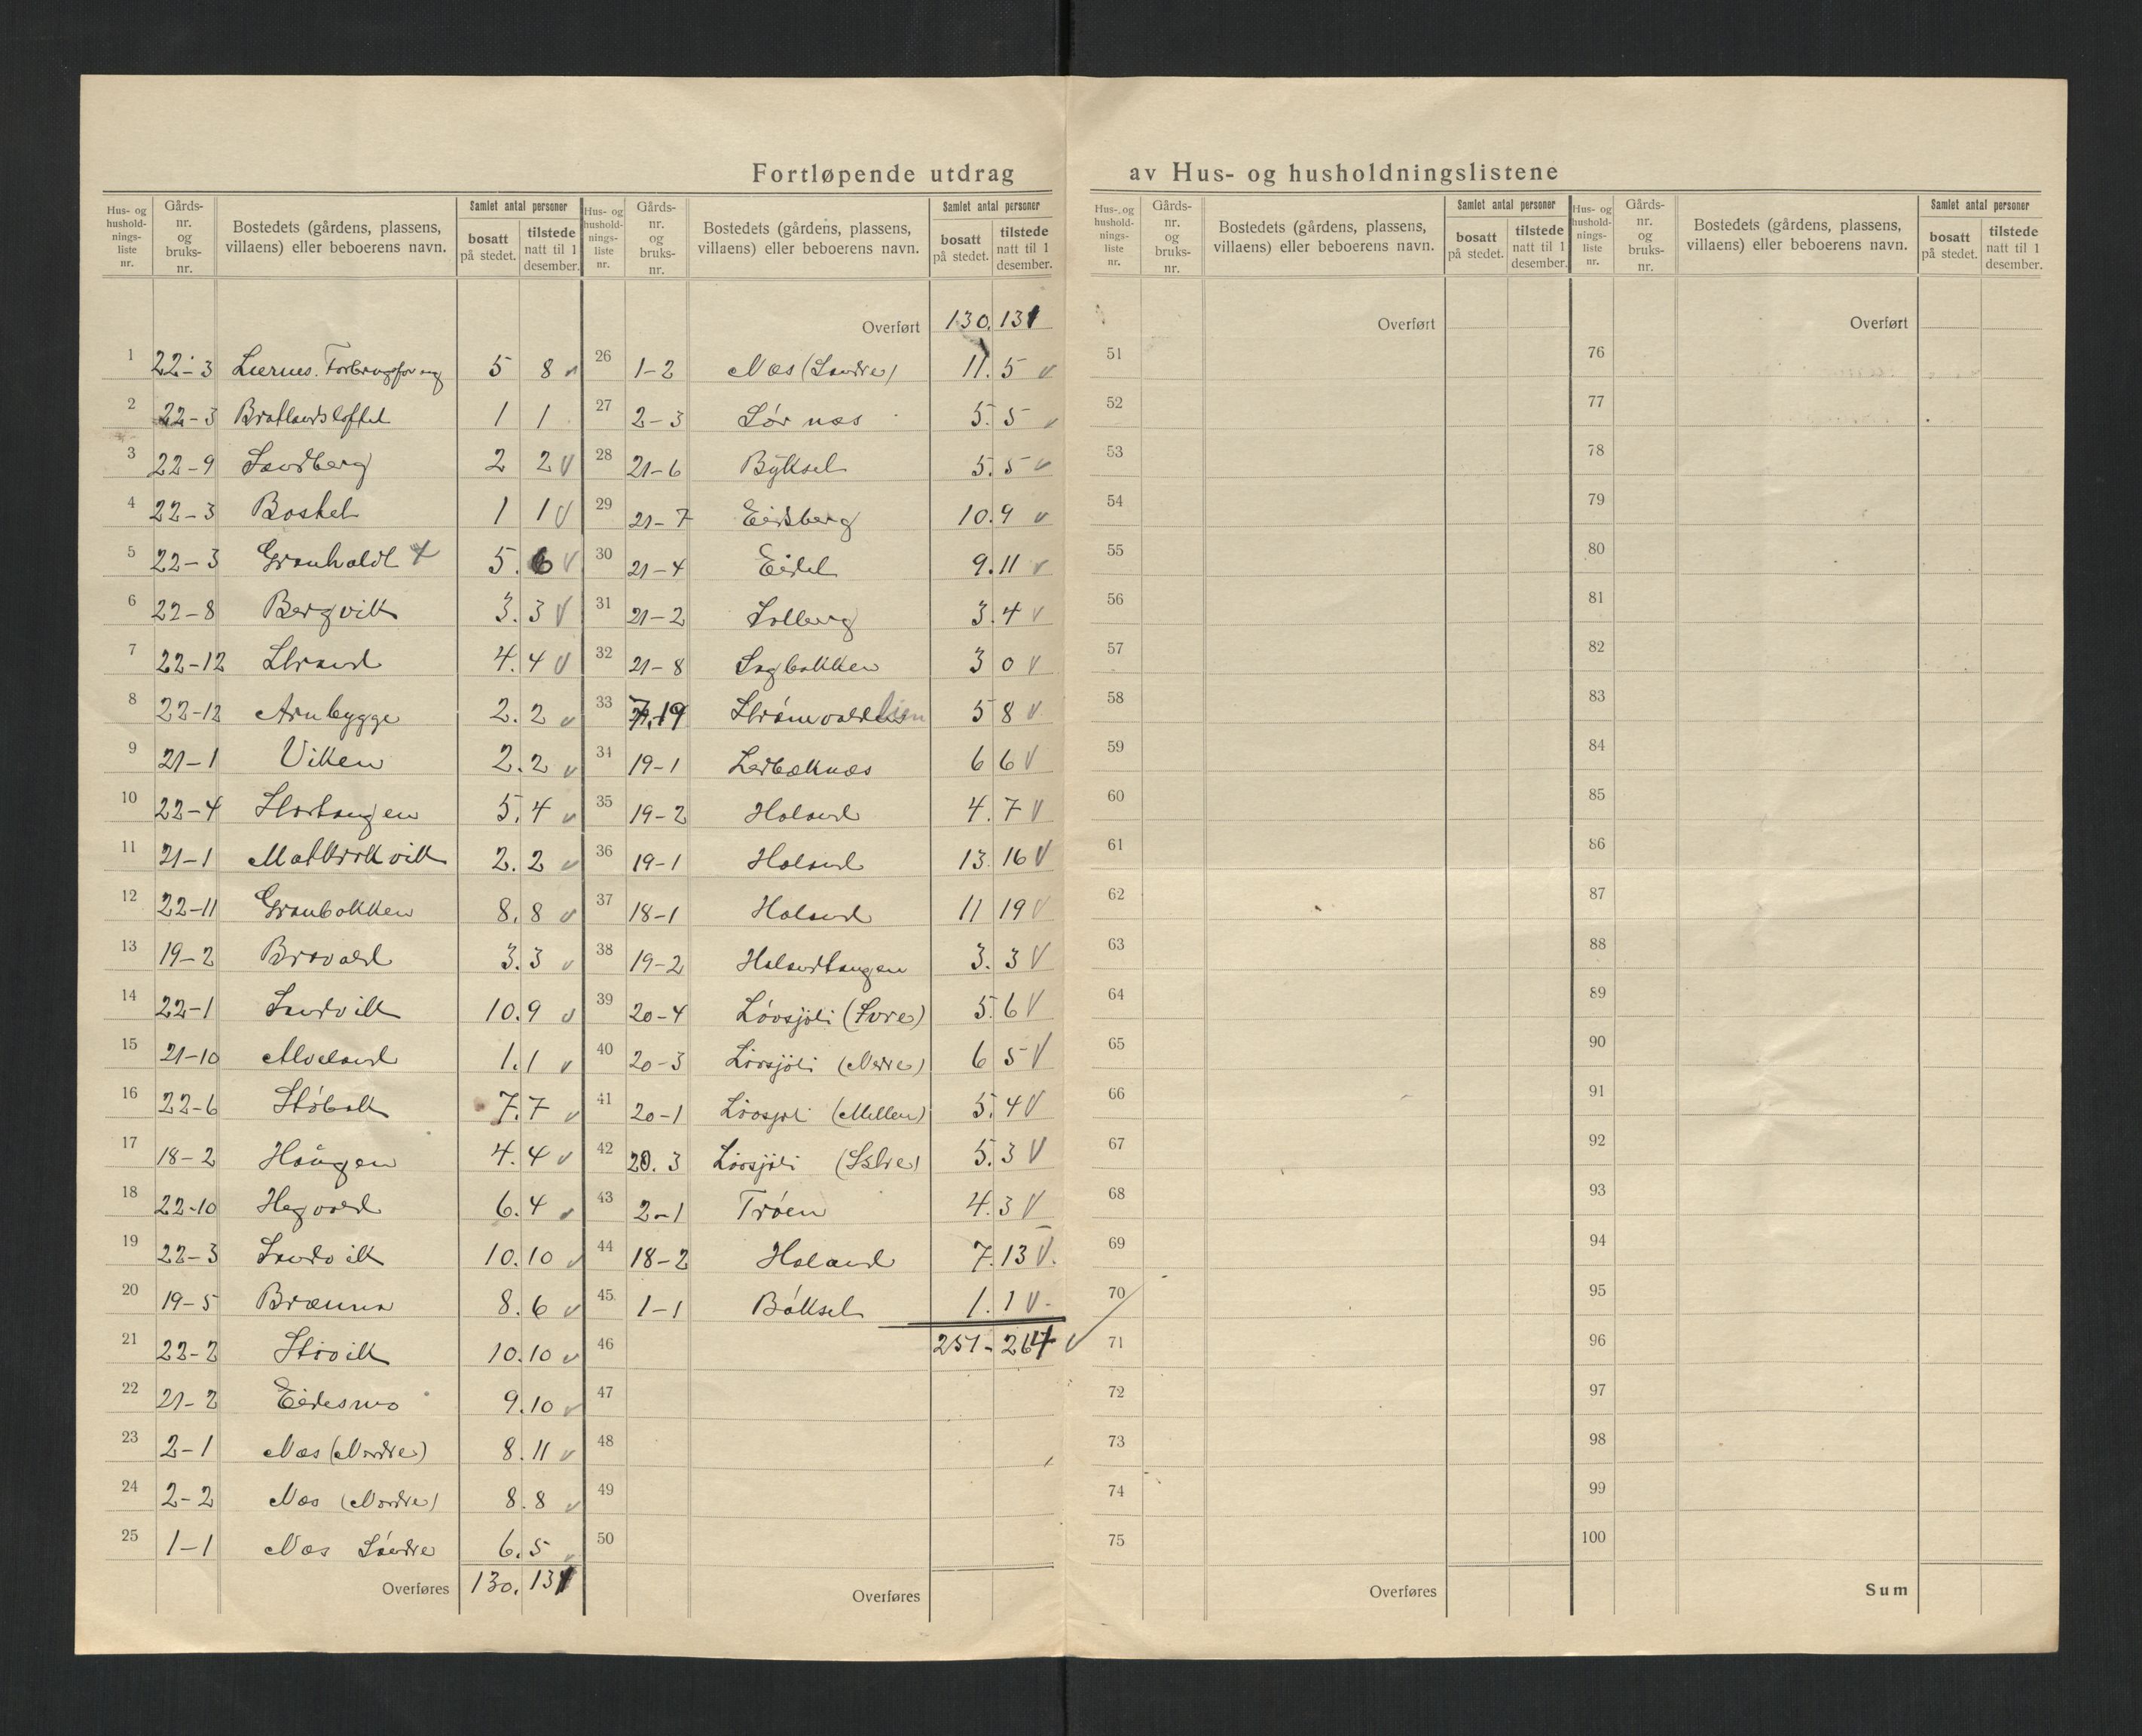 Fortløpende utdrag av Hus- og husholdningslistene
Hus- og hushold- nings- liste nr. Gårds- nr. og bruks- nr. Bostedets (gårdens, plassens, villaens) eller beboerens navn. Samlet antal personer bosatt på stedet. tilstede natt til 1 desember.
1 22-3 5 8
2 22-3 Bratlandsloftet 1 1
3 22-9 Sandberg 2 2 v
4 22-3 Boshel 1 1 v
5 22-3 Granholdt + 5. 6 v
6 22-8 Bergvik 3. 3 v
7 22-12 Strand 4. 4 v
8 22-12 Arnbygge 2. 2 v
9 21-1 Viken 2. 2 v
10 22-4 Stortangen 5. 4 v
11 21-1 2. 2 v
12 22-11 Granbakken 8. 8 v
13 19-2 Bravold 3. 3 v
14 22-1 Sandvik 10. 9 v
15 21-10 Moeland 1. 1 v
16 22-6 Støbakk 7. 7 v
17 18-2 Haugen 4. 4 v
18 22-10 Hegvold 6. 4 v
19 22-3 Sandvik 10. 10 v
20 19-5 Brænna 8. 6 v
21 22-2 Storvik 10. 10 v
22 21-2 Eidesmo 9. 10 v
23 2-1 Næs (Nordre) 8. 11 v
24 2-2 Næs (Nordre) 8. 8 v
25 1-1 Næs Søndre 6. 5 v
Overføres 130. 131
Hus- og hushold- nings- liste nr. Gårds- nr. og bruks- nr. Bostedets (gårdens, plassens, villaens) eller beboerens navn. Samlet antal personer bosatt på stedet. tilstede natt til 1 desember.
Overført 130. 131
26 1-2 Næs (Søndre) 11. 5 v
27 2-3 Sørnæs 5. 5 v
28 21-6 Byksel 5. 5 v
29 21-7 Eidsberg 10. 9 v
30 21-4 Eidet 9. 11 v
31 21-2 Solberg 3. 4 v
32 21-8 Sagbakken 3 0 v
33 19 5 8 v
34 19-1 Lerbæknæs 6 6 v
35 19-2 Holand 4. 7 v
36 19-1 Holand 13. 16 v
37 18-1 Holand 11 19 v
38 19-2 Holandtangen 3. 3 v
39 20-4 Løvsjøli (Øvre) 5. 6 v
40 20-3 Løvsjøli (Nedre) 6 5 v
41 20-1 Løvsjøli (Mellem) 5. 4 v
42 20. 3 Løvsjøli (Østre) 5. 3 v
43 2-1 Trøen 4. 3 v
44 18-2 Holand 7. 13 v.
45 1-1 Bøksel 1. 1 v
46 251 - 264 v
47
48
49
50
Overføres
Hus- og hushold- nings- liste nr. Gårds- nr. og bruks- nr. Bostedets (gårdens, plassens, villaens) eller beboerens navn. Samlet antal personer bosatt på stedet. tilstede natt til 1 desember.
Overført
51
52
53
54
55
56
57
58
59
60
61
62
63
64
65
66
67
68
69
70
71
72
73
74
75
Overføres
Hus- og hushold- nings- liste nr. Gårds- nr. og bruks- nr. Bostedets (gårdens, plassens, villaens) eller beboerens navn. Samlet antal personer bosatt på stedet. tilstede natt til 1 desember.
Overført
76
77
78
79
80
81
82
83
84
85
86
87
88
89
90
91
92
93
94
95
96
97
98
99
100
Sum